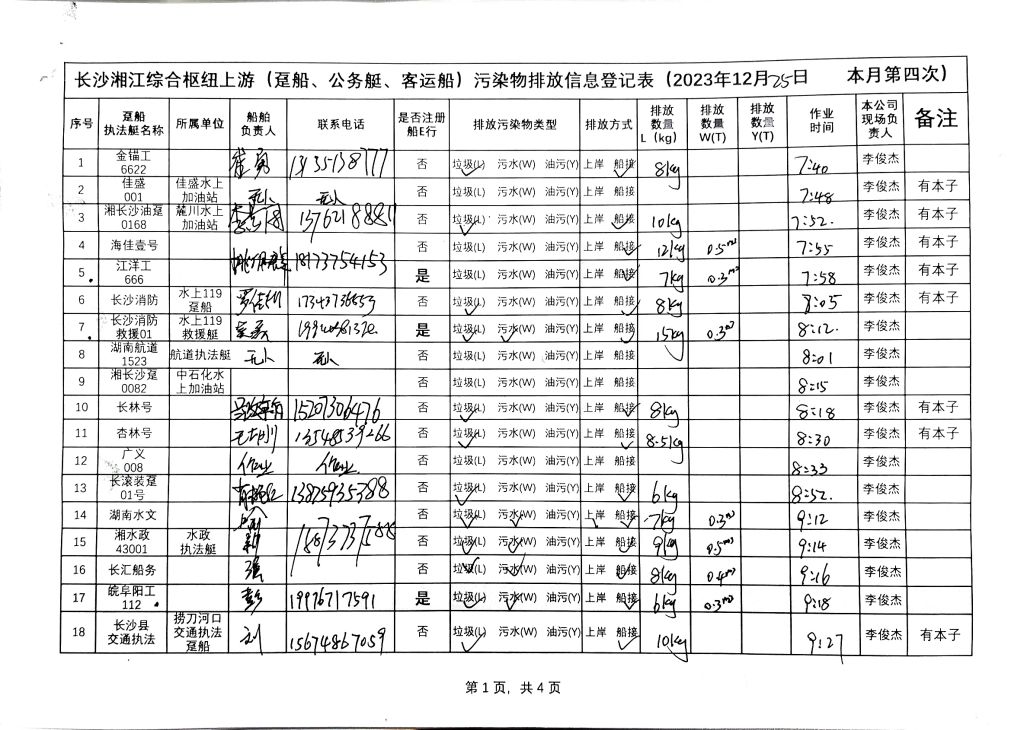 长沙湘江综合枢纽上游（趸船、公务艇、客运船）污染物排放信息登记表（2023年12月25日 本月第四次）
序号 趸船执法艇名称 所属单位 船舶负责人 联系电话 是否注册船E行 排放污染物类型 排放方式 排放数量L（kg） 排放数量W(T) 排放数量Y(T) 作业时间 本公司现场负责人 备注
1 金锚工6622 否 垃圾(L) 污水(W) 油污(Y) 上岸 船接 8kg 7:40 李俊杰
2 佳盛001 佳盛水上加油站 无人 无人 否 垃圾(L) 污水(W) 油污(Y) 上岸 船接 7:48 李俊杰 有本子
3 湘长沙油趸0168 麓川水上加油站 否 垃圾(L) 污水(W) 油污(Y) 上岸 船接 10kg 7:52. 李俊杰 有本子
4 海佳壹号 否 垃圾(L) 污水(W) 油污(Y) 上岸 船接 12kg 0.5m3 7:55 李俊杰 有本子
5 江洋工666 18173754153 是 垃圾(L) 污水(W) 油污(Y) 上岸 船接 7kg 0.3m3 7:58 李俊杰 有本子
6 长沙消防 水上119趸船 否 垃圾(L) 污水(W) 油污(Y) 上岸 船接 8kg 8:05 李俊杰 有本子
7 长沙消防救援01 水上119救援艇 是 垃圾(L) 污水(W) 油污(Y) 上岸 船接 15kg 0.3m3 8:12. 李俊杰
8 湖南航道1523 航道执法艇 无人 无人 否 垃圾(L) 污水(W) 油污(Y) 上岸 船接 8:01 李俊杰
9 湘长沙趸0082 中石化水上加油站 否 垃圾(L) 污水(W) 油污(Y) 上岸 船接 8:15 李俊杰
10 长林号 15207306476 否 垃圾(L) 污水(W) 油污(Y) 上岸 船接 8kg 8:18 李俊杰 有本子
11 杏林号 13548539266 否 垃圾(L) 污水(W) 油污(Y) 上岸 船接 8.5kg 8:30 李俊杰 有本子
12 广义008 作业 作业 否 垃圾(L) 污水(W) 油污(Y) 上岸 船接 8:33 李俊杰
13 长滚装趸01号 13875935388 否 垃圾(L) 污水(W) 油污(Y) 上岸 船接 6kg 8:52. 李俊杰
14 湖南水文 否 垃圾(L) 污水(W) 油污(Y) 上岸 船接 7kg 0.3m3 9:12 李俊杰
15 湘水政43001 水政执法艇 否 垃圾(L) 污水(W) 油污(Y) 上岸 船接 9kg 0.5m3 9:14 李俊杰
16 长汇船务 强 否 垃圾(L) 污水(W) 油污(Y) 上岸 船接 8kg 0.4m3 9:16 李俊杰
17 皖阜阳工112 彭 19976717591 是 垃圾(L) 污水(W) 油污(Y) 上岸 船接 6kg 0.3m3 9:18 李俊杰
18 长沙县交通执法 捞刀河口交通执法趸船 刘 15674867059 否 垃圾(L) 污水(W) 油污(Y) 上岸 船接 10kg 9:27 李俊杰 有本子
第 1 页，共 4 页